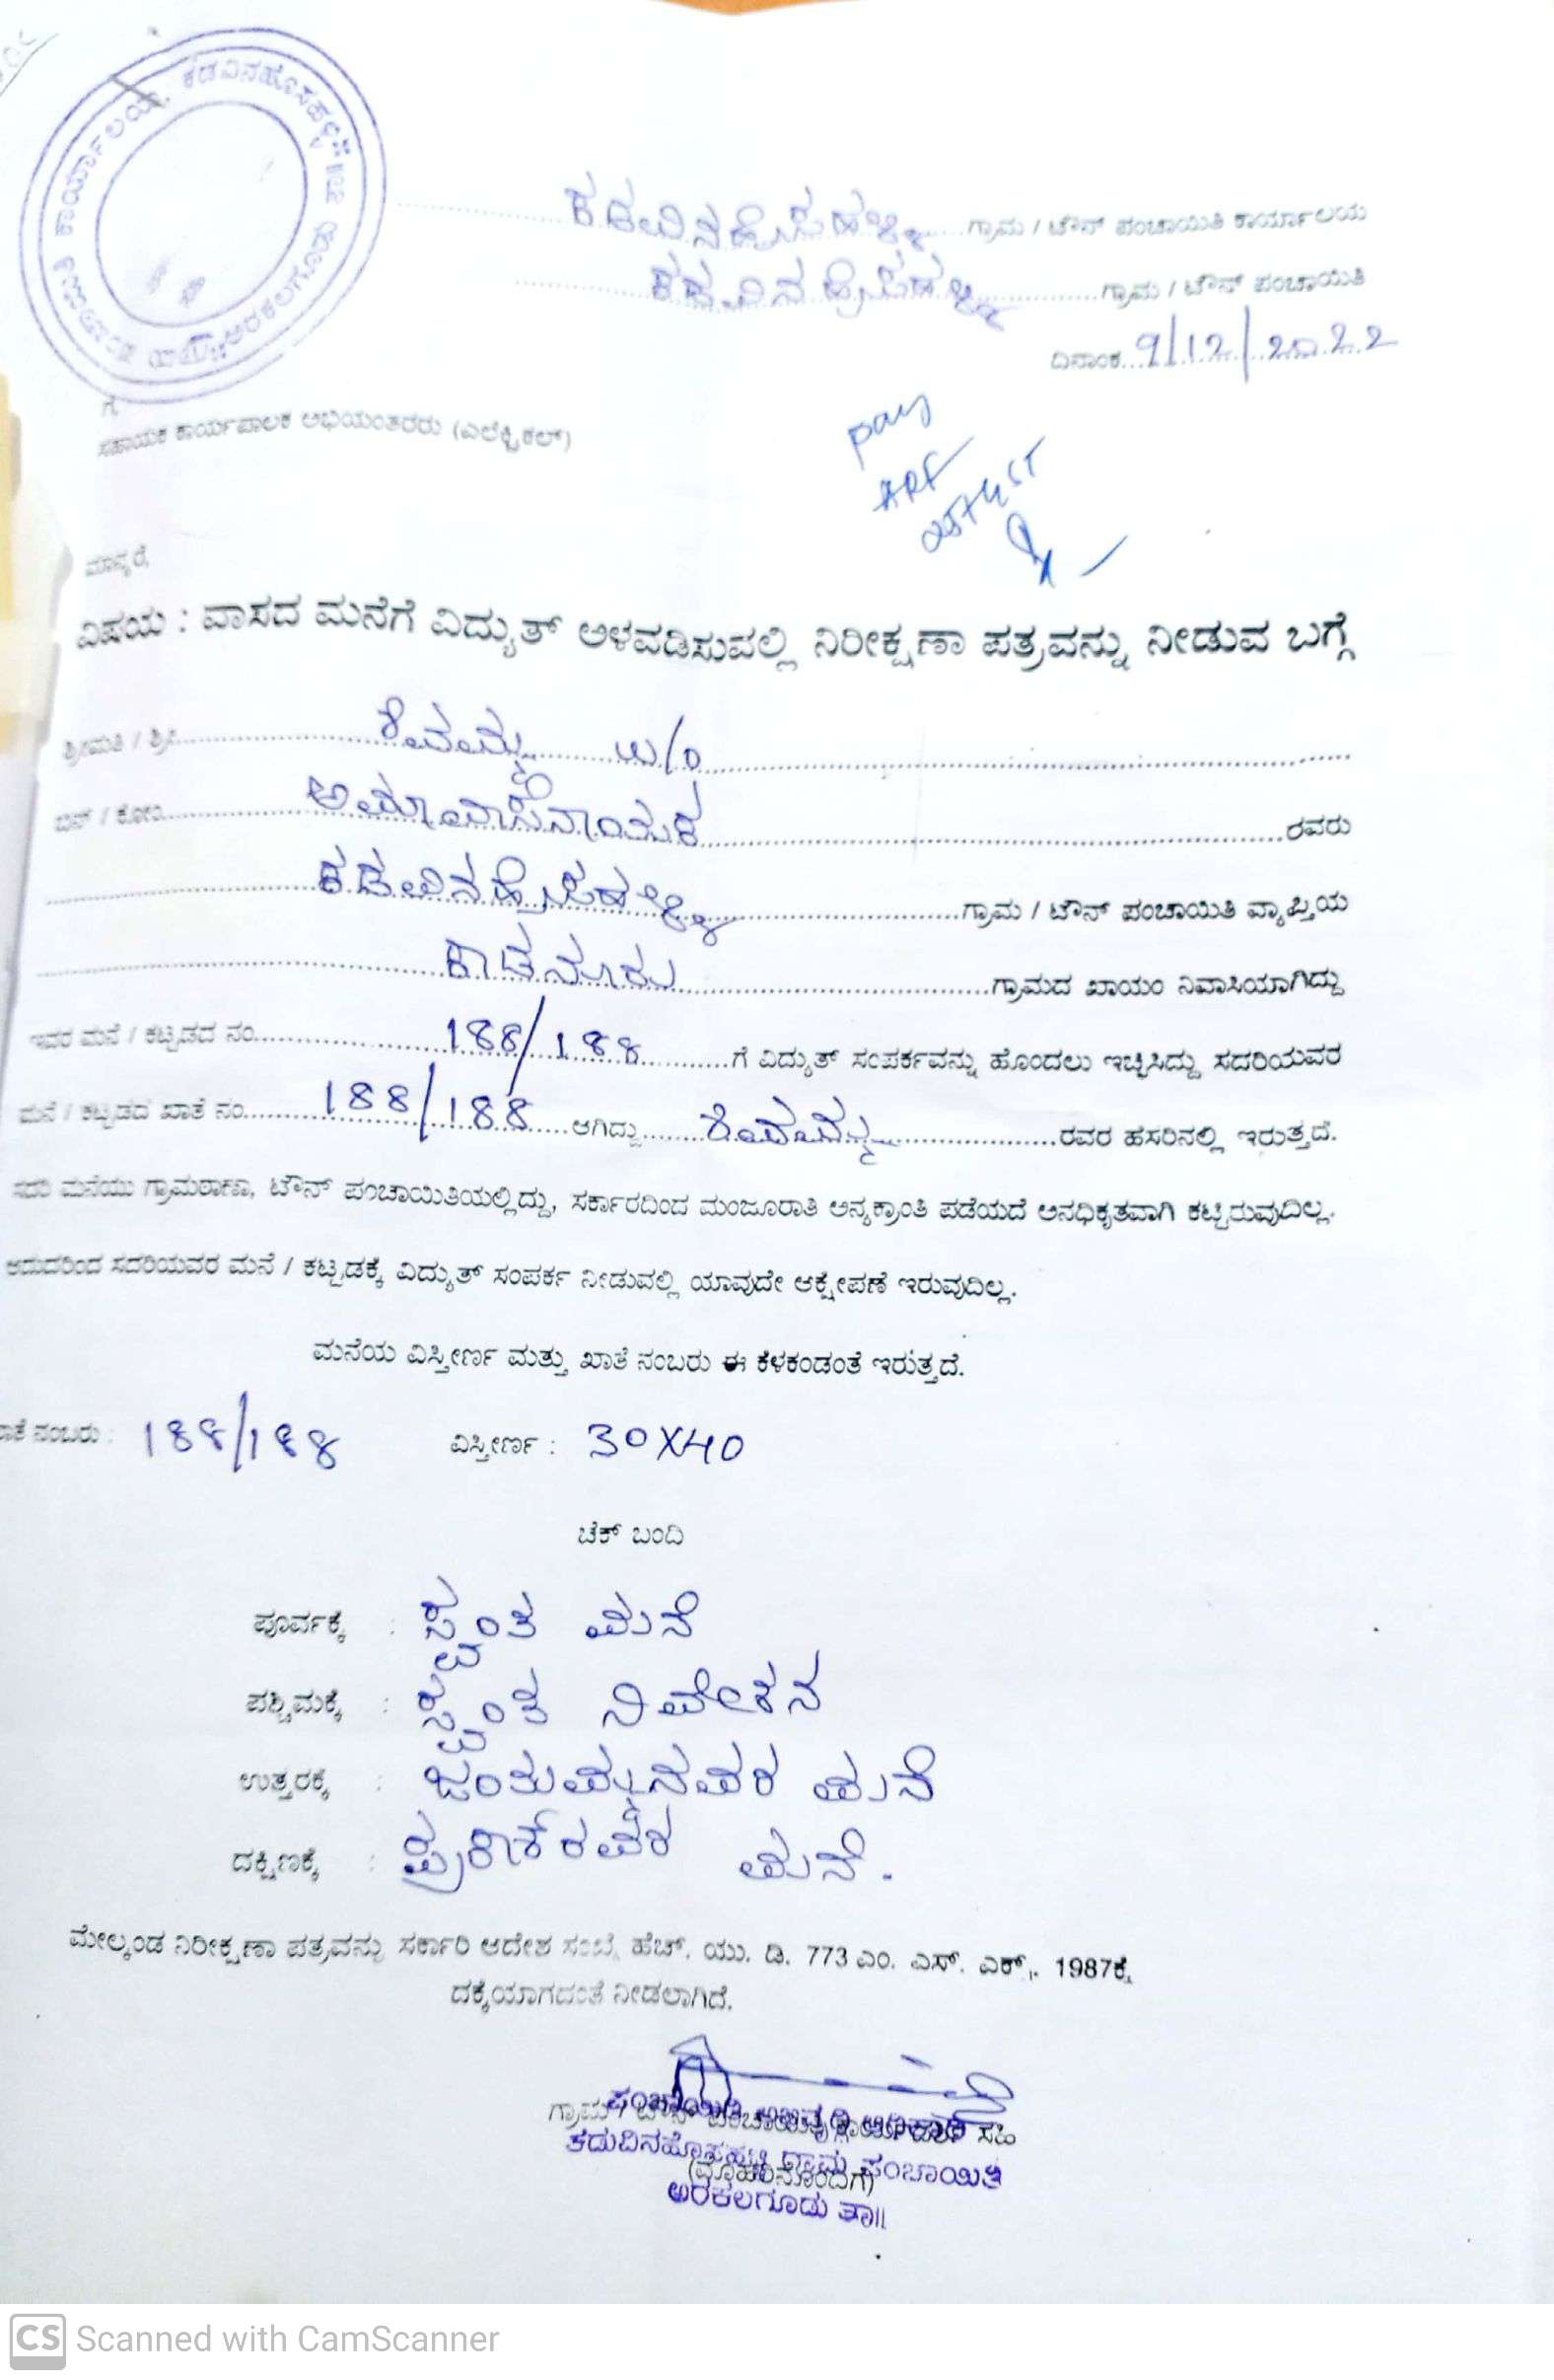 ಕಡವಿನಹೊಸಹಳ್ಳಿ ಗ್ರಾಮ / ಟೌನ್ ಪಂಚಾಯಿತಿ ಕಾರ್ಯಾಲಯ
ಕಡವಿನಹೊಸಹಳ್ಳಿ ಗ್ರಾಮ / ಟೌನ್ ಪಂಚಾಯಿತಿ
ದಿನಾಂಕ 9/12/2022
ಗೆ,
ಸಹಾಯಕ ಕಾರ್ಯಪಾಲಕ ಅಭಿಯಂತರರು (ಎಲೆಕ್ಟ್ರಿಕಲ್)
pay
ARF
ಮಾನ್ಯರೆ,
ವಿಷಯ : ವಾಸದ ಮನೆಗೆ ವಿದ್ಯುತ್ ಅಳವಡಿಸುವಲ್ಲಿ ನಿರೀಕ್ಷಣಾ ಪತ್ರವನ್ನು ನೀಡುವ ಬಗ್ಗೆ
ಶ್ರೀಮತಿ / ಶ್ರೀ ಶಿವಮ್ಮ w/o
ಬಿನ್ / ಕೋಂ ಅಮಾವಾಸೆನಾಯಕ ರವರು
ಕಡವಿನಹೊಸಹಳ್ಳಿ ಗ್ರಾಮ / ಟೌನ್ ಪಂಚಾಯಿತಿ ವ್ಯಾಪ್ತಿಯ
ಕಾಡನೂರು ಗ್ರಾಮದ ಖಾಯಂ ನಿವಾಸಿಯಾಗಿದ್ದು
ಇವರ ಮನೆ / ಕಟ್ಟಡದ ನಂ. 188/188 ಗೆ ವಿದ್ಯುತ್ ಸಂಪರ್ಕವನ್ನು ಹೊಂದಲು ಇಚ್ಛಿಸಿದ್ದು ಸದರಿಯವರ
ಮನೆ / ಕಟ್ಟಡದ ಖಾತೆ ನಂ. 188/188 ಆಗಿದ್ದು ಶಿವಮ್ಮ ರವರ ಹೆಸರಿನಲ್ಲಿ ಇರುತ್ತದೆ.
ಸದರಿ ಮನೆಯು ಗ್ರಾಮಠಾಣಾ, ಟೌನ್ ಪಂಚಾಯಿತಿಯಲ್ಲಿದ್ದು, ಸರ್ಕಾರದಿಂದ ಮಂಜೂರಾತಿ ಅನ್ಯಕ್ರಾಂತಿ ಪಡೆಯದೆ ಅನಧಿಕೃತವಾಗಿ ಕಟ್ಟಿರುವುದಿಲ್ಲ.
ಆದುದರಿಂದ ಸದರಿಯವರ ಮನೆ / ಕಟ್ಟಡಕ್ಕೆ ವಿದ್ಯುತ್ ಸಂಪರ್ಕ ನೀಡುವಲ್ಲಿ ಯಾವುದೇ ಆಕ್ಷೇಪಣೆ ಇರುವುದಿಲ್ಲ.
ಮನೆಯ ವಿಸ್ತೀರ್ಣ ಮತ್ತು ಖಾತೆ ನಂಬರು ಈ ಕೆಳಕಂಡಂತೆ ಇರುತ್ತದೆ.
ಖಾತೆ ನಂಬರು : 188/188 ವಿಸ್ತೀರ್ಣ : 30X40
ಚೆಕ್ ಬಂದಿ
ಪೂರ್ವಕ್ಕೆ : ಸ್ವಂತ ಮನೆ
ಪಶ್ಚಿಮಕ್ಕೆ : ಸ್ವಂತ ನಿವೇಶನ
ಉತ್ತರಕ್ಕೆ : ಜಂತುಮ್ಮನವರ ಮನೆ
ದಕ್ಷಿಣಕ್ಕೆ : ಪ್ರಕಾಶರವರ ಮನೆ.
ಮೇಲ್ಕಂಡ ನಿರೀಕ್ಷಣಾ ಪತ್ರವನ್ನು ಸರ್ಕಾರಿ ಆದೇಶ ಸಂಖ್ಯೆ ಹೆಚ್. ಯು. ಡಿ. 773 ಎಂ. ಎಸ್. ಎಕ್ಸ್. 1987ಕ್ಕೆ
ದಕ್ಕೆಯಾಗದಂತೆ ನೀಡಲಾಗಿದೆ.
ಪಂಚಾಯಿತಿ ಅಭಿವೃದ್ಧಿ ಅಧಿಕಾರಿ
ಕಡುವಿನಹೊಸಹಳ್ಳಿ ಗ್ರಾಮ ಪಂಚಾಯಿತಿ
(ಮೊಹರಿನೊಂದಿಗೆ)
ಅರಕಲಗೂಡು ತಾ||
CS Scanned with CamScanner